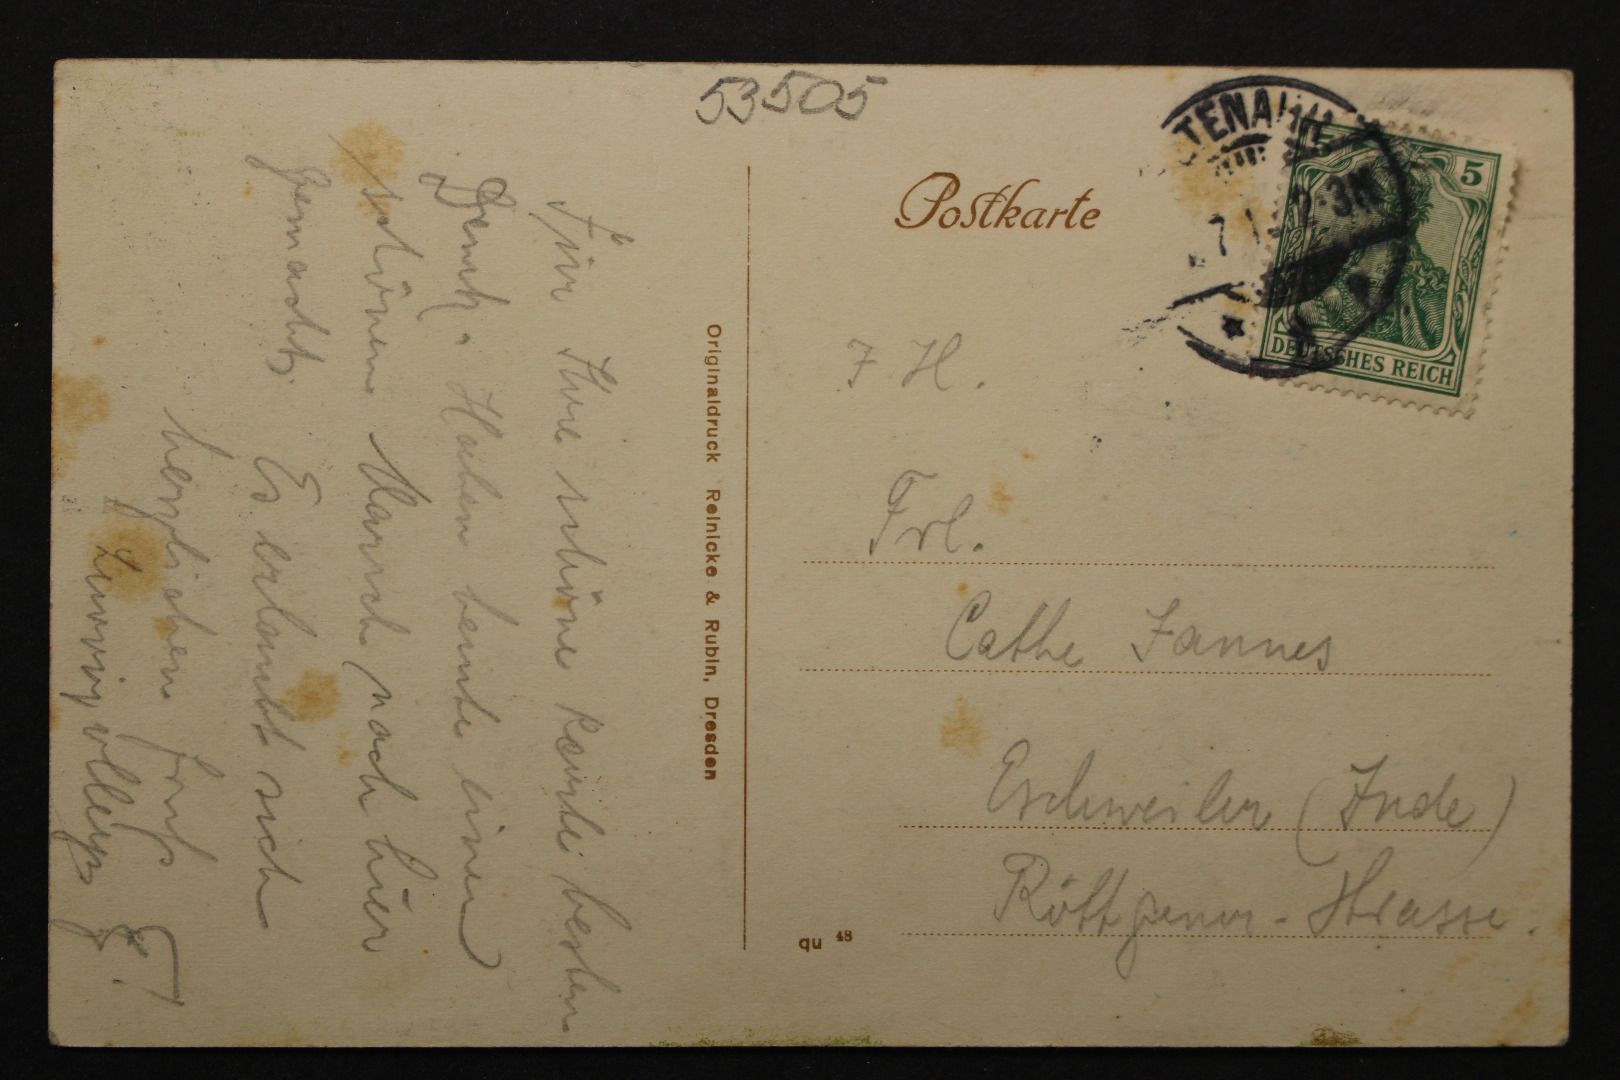 53505
Postkarte
TENAHR
7. 1
2-3N
5
5
DEUTSCHES REICH
Für Ihre schöne Karte besten
Dank. Haben heute einen
schönen Marsch nach hier
gemacht. Es erlaubt sich
herzlichen Gruß
E. T.
Originaldruck Reinicke & Rubin, Dresden
z. H.
Frl.
Cathe Jannes
Eschweiler (Inde)
Röttgener-Strasse.
qu 48